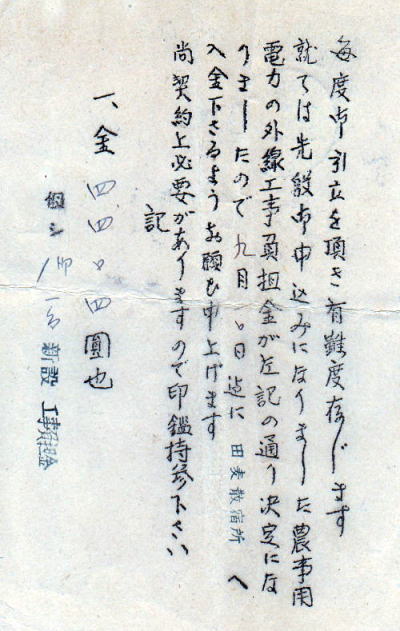 毎度御引立を頂き有難度存じます
就ては先般御申込みになりました農事用
電力の外線工事負担金が左記の通り決定にな
りましたので九月 日迄に 田麦散宿所 へ
入金下さるようお願ひ申上げます
尚契約上必要がありますので印鑑持参下さい
記
一、金 四四〇四 圓也
新設 工事負担金